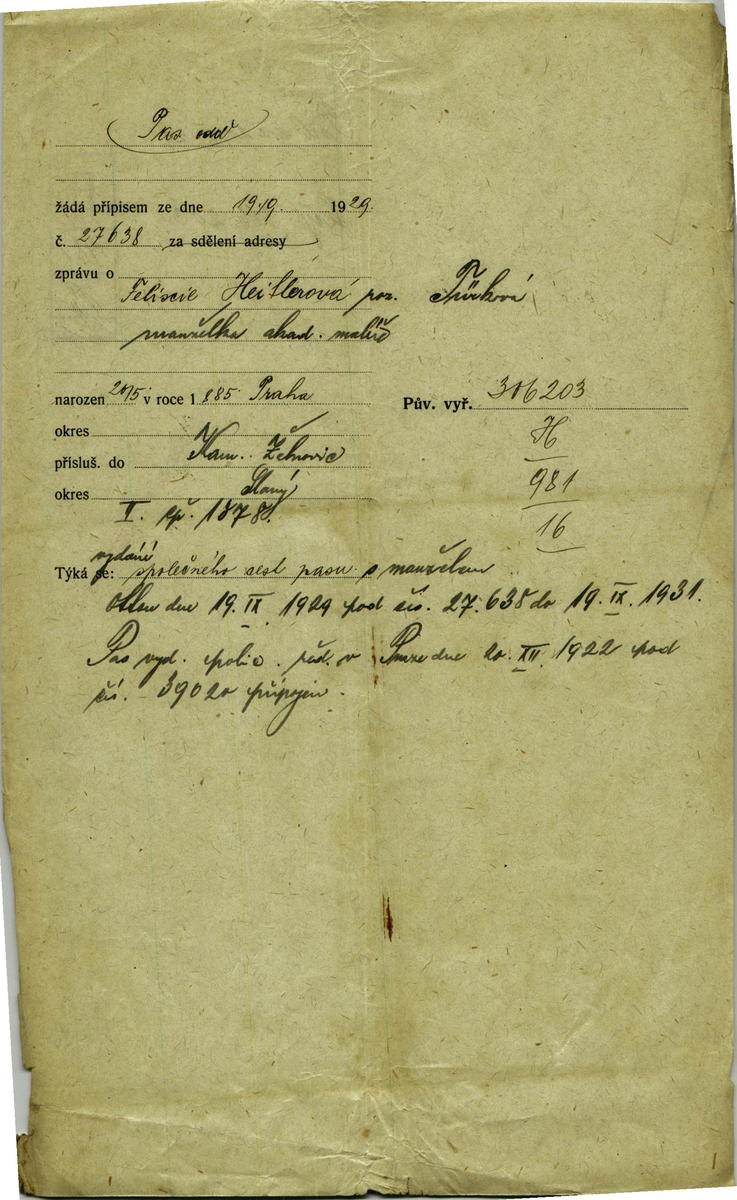 Pas. odd
žádá přípisem ze dne 19./9. 1929.
č. 27638 za sdělení adresy
zprávu o
Felicie Heitlerová roz.
manželka akad. malíře
narozen 20/5 v roce 1885. Praha
Pův. vyř. 306203
H
981
16
okres
přísluš. do Kam. Žehrovic
okres Slaný
II. čp. 1878.
vydání
Týká se: společného cest pasu s manželem
dne 19. IX 1929 pod čís. 27.638 do 19. IX. 1931.
Pas vyd. polic. řed. v Praze dne 20. XII. 1922 pod
čís. 39020 připojen.